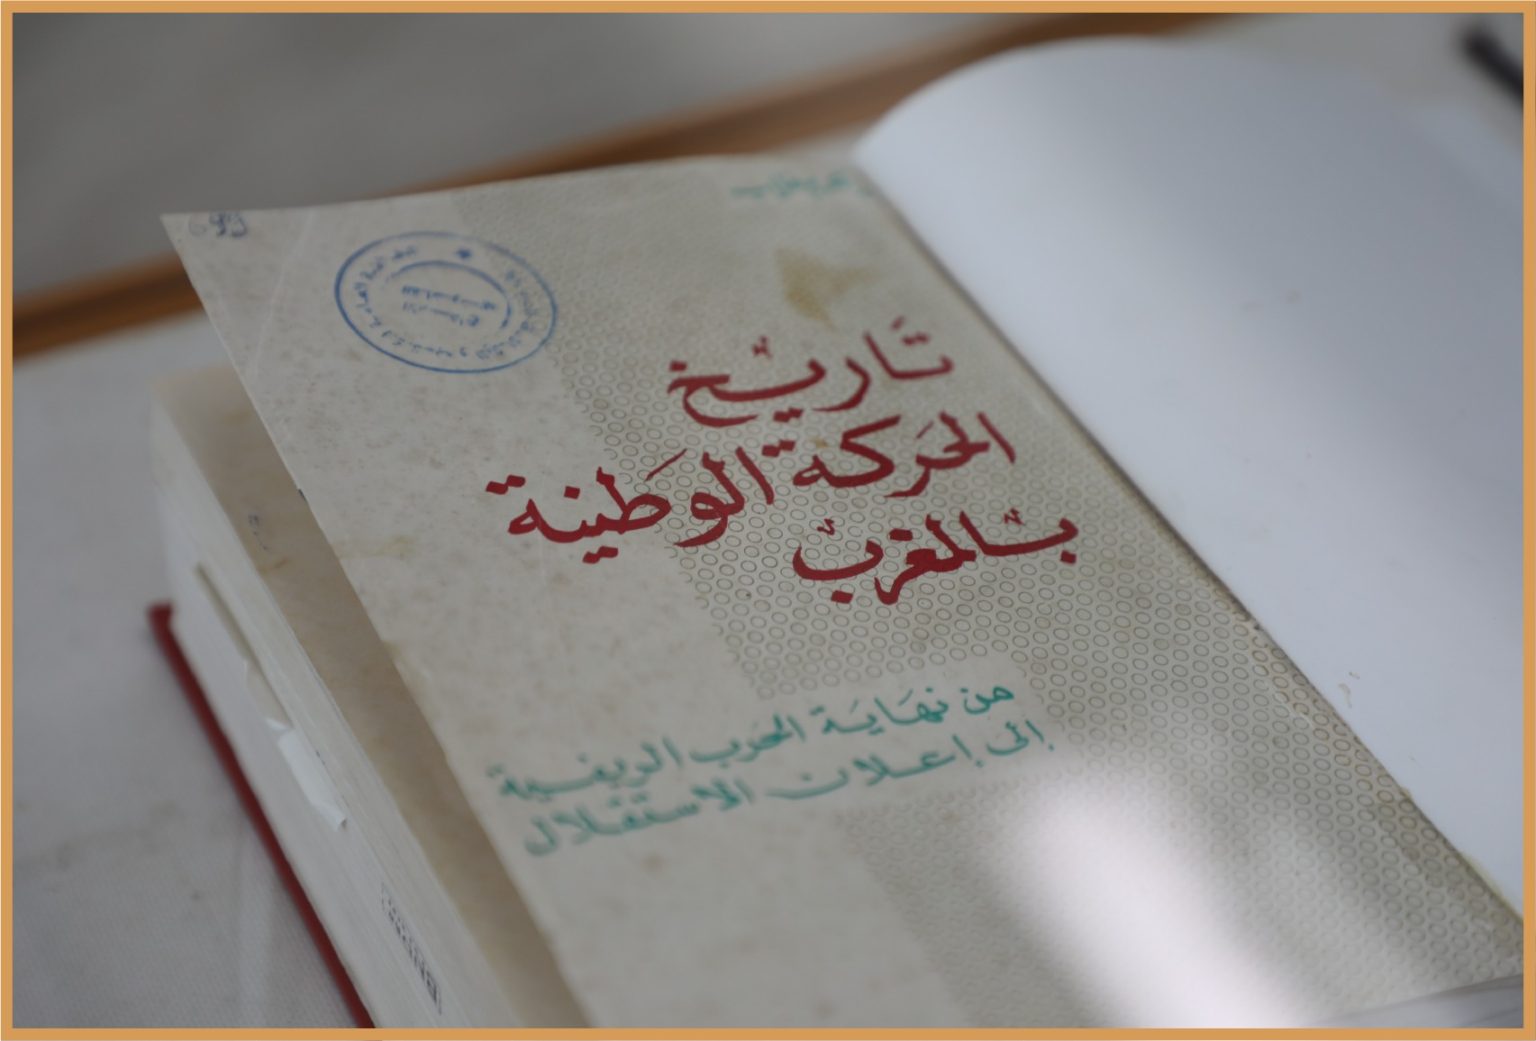 تاريخ
الحركة الوطنية
بالمغرب
من نهاية الحرب الريفية
إلى إعلان الاستقلال